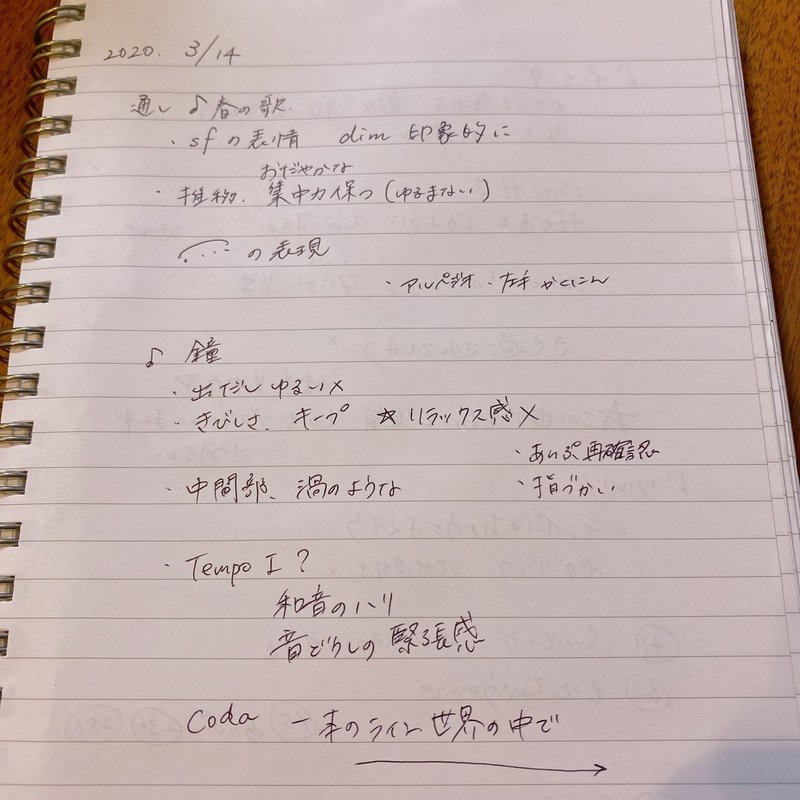 2020. 3/14
通し ♪春の歌.
・sfの表情 dim 印象的に
おだやかな
・推移. 集中力保つ(ゆるまない)
の表現
・アルペジオ・左手 かくにん
♪ 鐘
・出だし ゆるい×
・きびしさ. キープ ☆リラックス感×
・あんぷ再確認
・中間部、渦のような
・指づかい
・Tempo I ?
和音のハリ
音どうしの緊張感
Coda 一本のライン 世界の中で